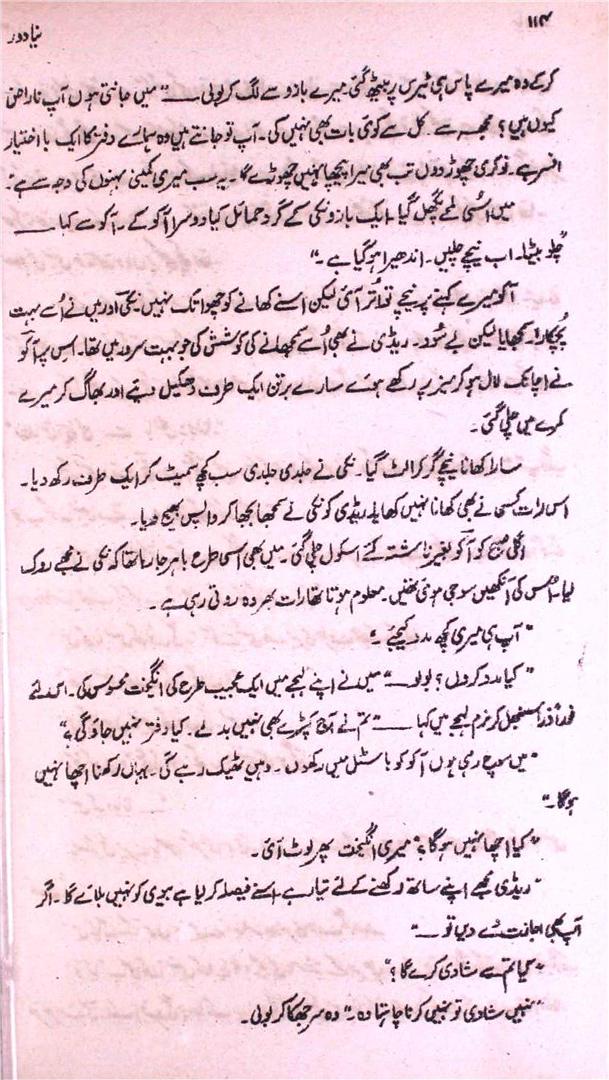 ۱۱۴
نیا دور
کرکے وہ میرے پاس ہی ٹیرس پر بیٹھ گئی میرے بازو سے لگ کر بولی —— ”میں جانتی ہوں آپ ناراض
کیوں ہیں؟ مجھ سے کل سے کوئی بات بھی نہیں کی۔ آپ تو جانتے ہیں وہ ہمارے دفتر کا ایک با اختیار
افسر ہے۔ نوکری چھوڑ دوں تب بھی میرا پیچھا نہیں چھوڑے گا۔ یہ سب میری کمینی بہنوں کی وجہ سے ہے“
میں اسی لمحے پگھل گیا۔ ایک بازو نکی کے گرد حمائل کیا دوسرا آکو کے۔ آکو سے کہا ——
”چلو بیٹا۔ اب نیچے چلیں۔ اندھیرا ہو گیا ہے۔“
آکو میرے کہنے پر نیچے تو اُتر آئی لیکن اسنے کھانے کو چھوا تک نہیں۔ نکی اور میں نے اُسے بہت
پچکارا۔ سمجھایا لیکن بے سُود۔ ریڈی نے بھی اُسے سمجھانے کی کوشش کی جو بہت سرور میں تھا۔ اس پر آکو
نے اچانک لال ہو کر میز پر رکھے ہوئے سارے برتن ایک طرف دھکیل دیئے اور بھاگ کر میرے
کمرے میں چلی گئی۔
سارا کھانا نیچے گر کر الٹ گیا۔ نکی نے جلدی جلدی سب کچھ سمیٹ کر ایک طرف رکھ دیا۔
اس رات کسی نے بھی کھانا نہیں کھایا۔ ریڈی کو نکی نے سمجھا بجھا کر واپس بھیج دیا۔
اگلی صبح کو آکو بغیر ناشتہ کئے اسکول چلی گئی۔ میں بھی اسی طرح باہر جا رہا تھا کہ نکی نے مجھے روک
لیا۔ اس کی آنکھیں سوجی ہوئی تھیں۔ معلوم ہوتا تھا رات بھر وہ روتی رہی ہے۔
”آپ ہی میری کچھ مدد کیجئے۔“
”کیا مدد کروں؟ بولو۔“ میں نے اپنے لہجے میں ایک عجیب طرح کی انگیخت محسوس کی۔ اس لئے
فوراً ذرا سنبھل کر نرم لہجے میں کہا —— ”تم نے آج کپڑے بھی نہیں بدلے۔ کیا دفتر نہیں جاؤ گی؟“
”میں سوچ رہی ہوں آکو کو ہاسٹل میں رکھ دوں۔ وہیں ٹھیک رہے گی۔ یہاں رکھنا اچھا نہیں
ہوگا۔“
”کیا اچھا نہیں ہوگا؟“ میری انگیخت پھر لوٹ آئی۔
”ریڈی مجھے اپنے ساتھ رکھنے کے لئے تیار ہے۔ اسنے فیصلہ کر لیا ہے بیوی کو نہیں بلائے گا۔ اگر
آپ بھی اجازت دے دیں تو —“
”کیا تم سے شادی کرے گا؟“
”نہیں شادی تو نہیں کرنا چاہتا وہ۔“ وہ سر جھکا کر بولی۔